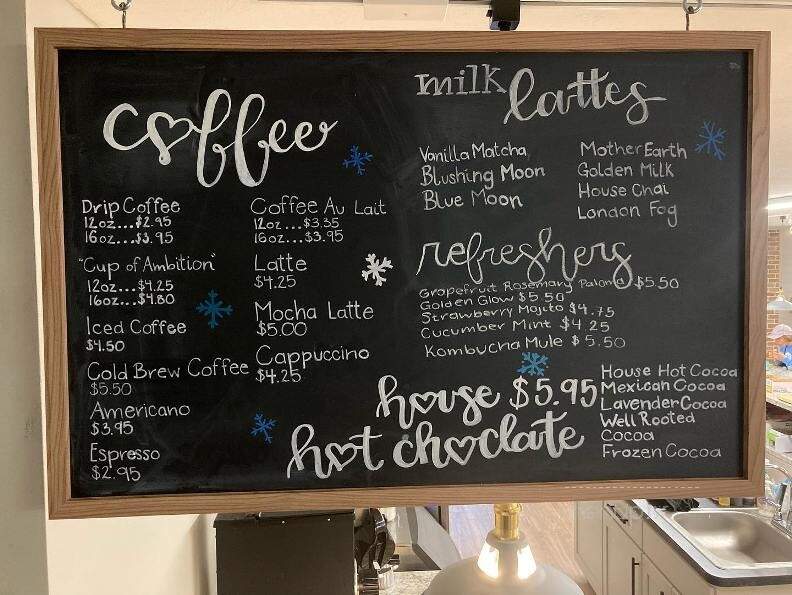 coffee
Drip Coffee
12oz...$2.95
16oz...$3.95
"Cup of Ambition"
12oz...$4.25
16oz...$4.80
Iced Coffee
$4.50
Cold Brew Coffee
$5.50
Americano
$3.95
Espresso
$2.95
Coffee Au Lait
12oz...$3.35
16oz...$3.95
Latte
$4.25
Mocha Latte
$5.00
Cappuccino
$4.25
milk lattes
Vanilla Matcha
Blushing Moon
Blue Moon
Mother Earth
Golden Milk
House Chai
London Fog
refreshers
Grapefruit Rosemary Paloma $5.50
Golden Glow $5.50
Strawberry Mojito $4.75
Cucumber Mint $4.25
Kombucha Mule $5.50
house $5.95
hot choclate
House Hot Cocoa
Mexican Cocoa
Lavender Cocoa
Well Rooted
Cocoa
Frozen Cocoa